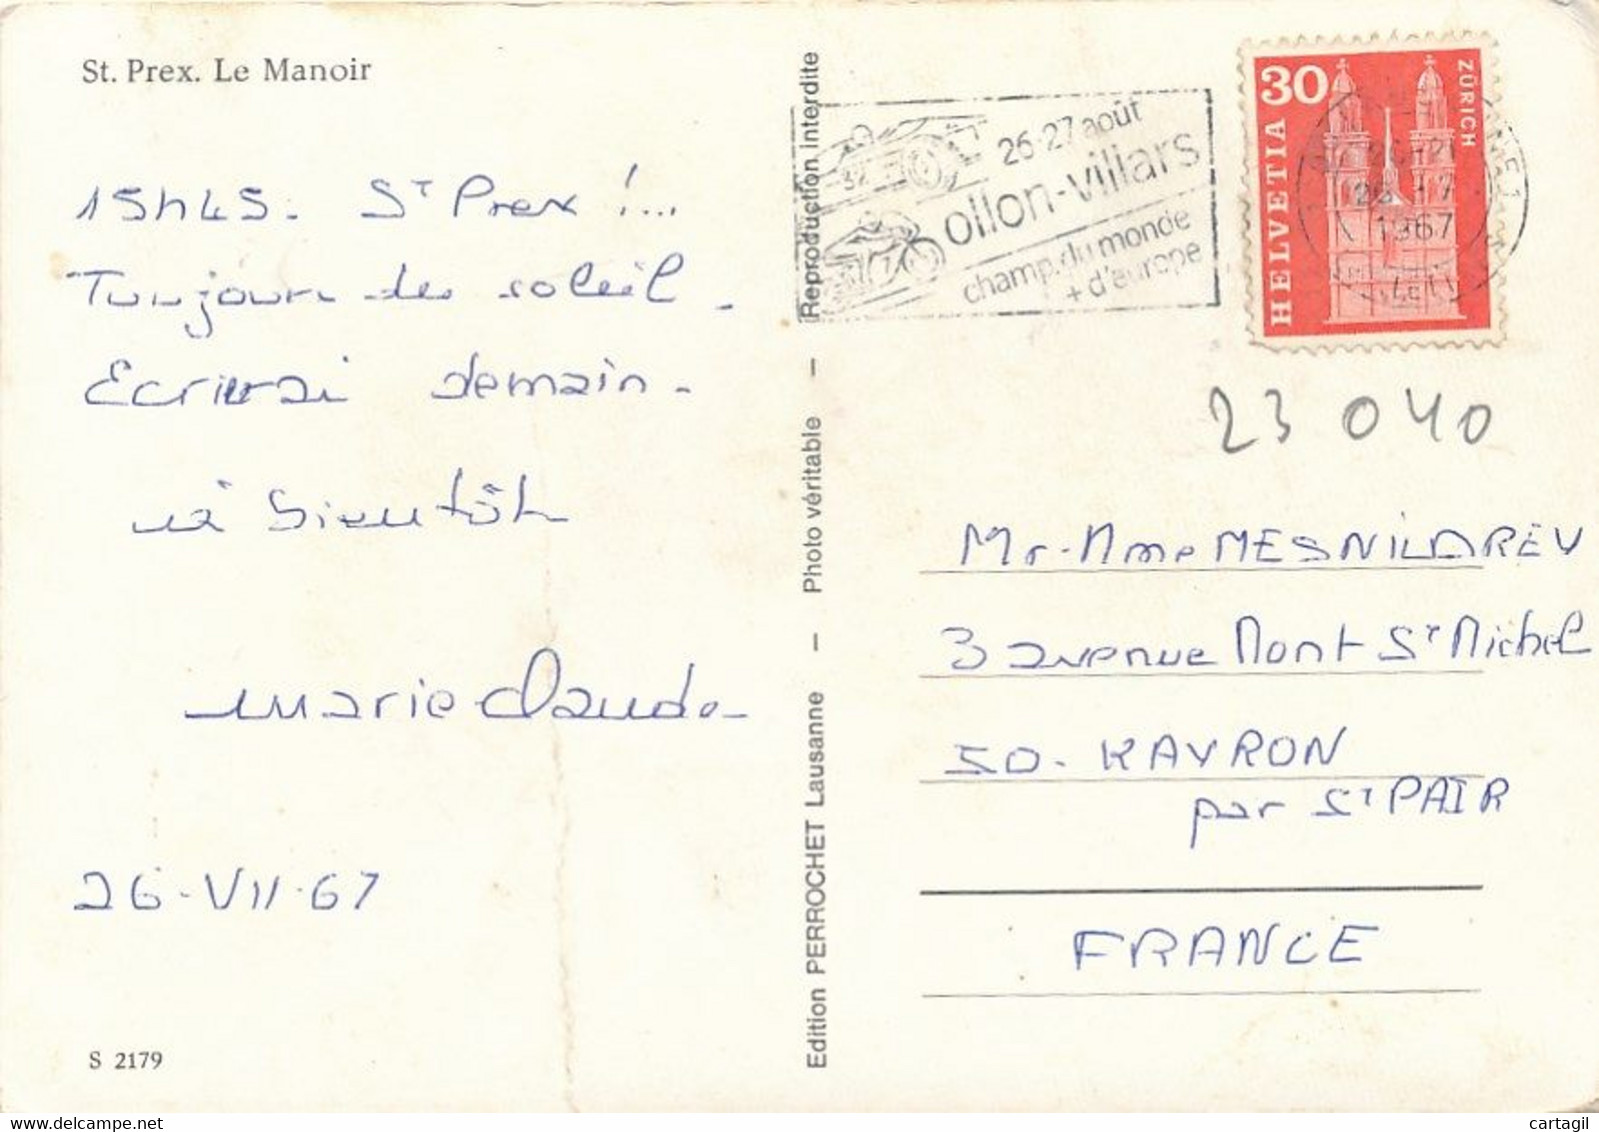 St. Prex. Le Manoir
15h45. St Prex !...
Toujours du soleil.
Ecrirai demain.
à bientôt
Marie Claude
26-VII-67
S 2179
Edition PERROCHET Lausanne — Photo véritable — Reproduction interdite
26-27 août
ollon-villars
champ. du monde
+ d'europe
32
HELVETIA
30
ZÜRICH
26-7
1967
23 040
Mr-Mme
3 avenue Mont St Michel
50. KAYRON
par St PAIR
FRANCE
© cartagil - delcampe.net